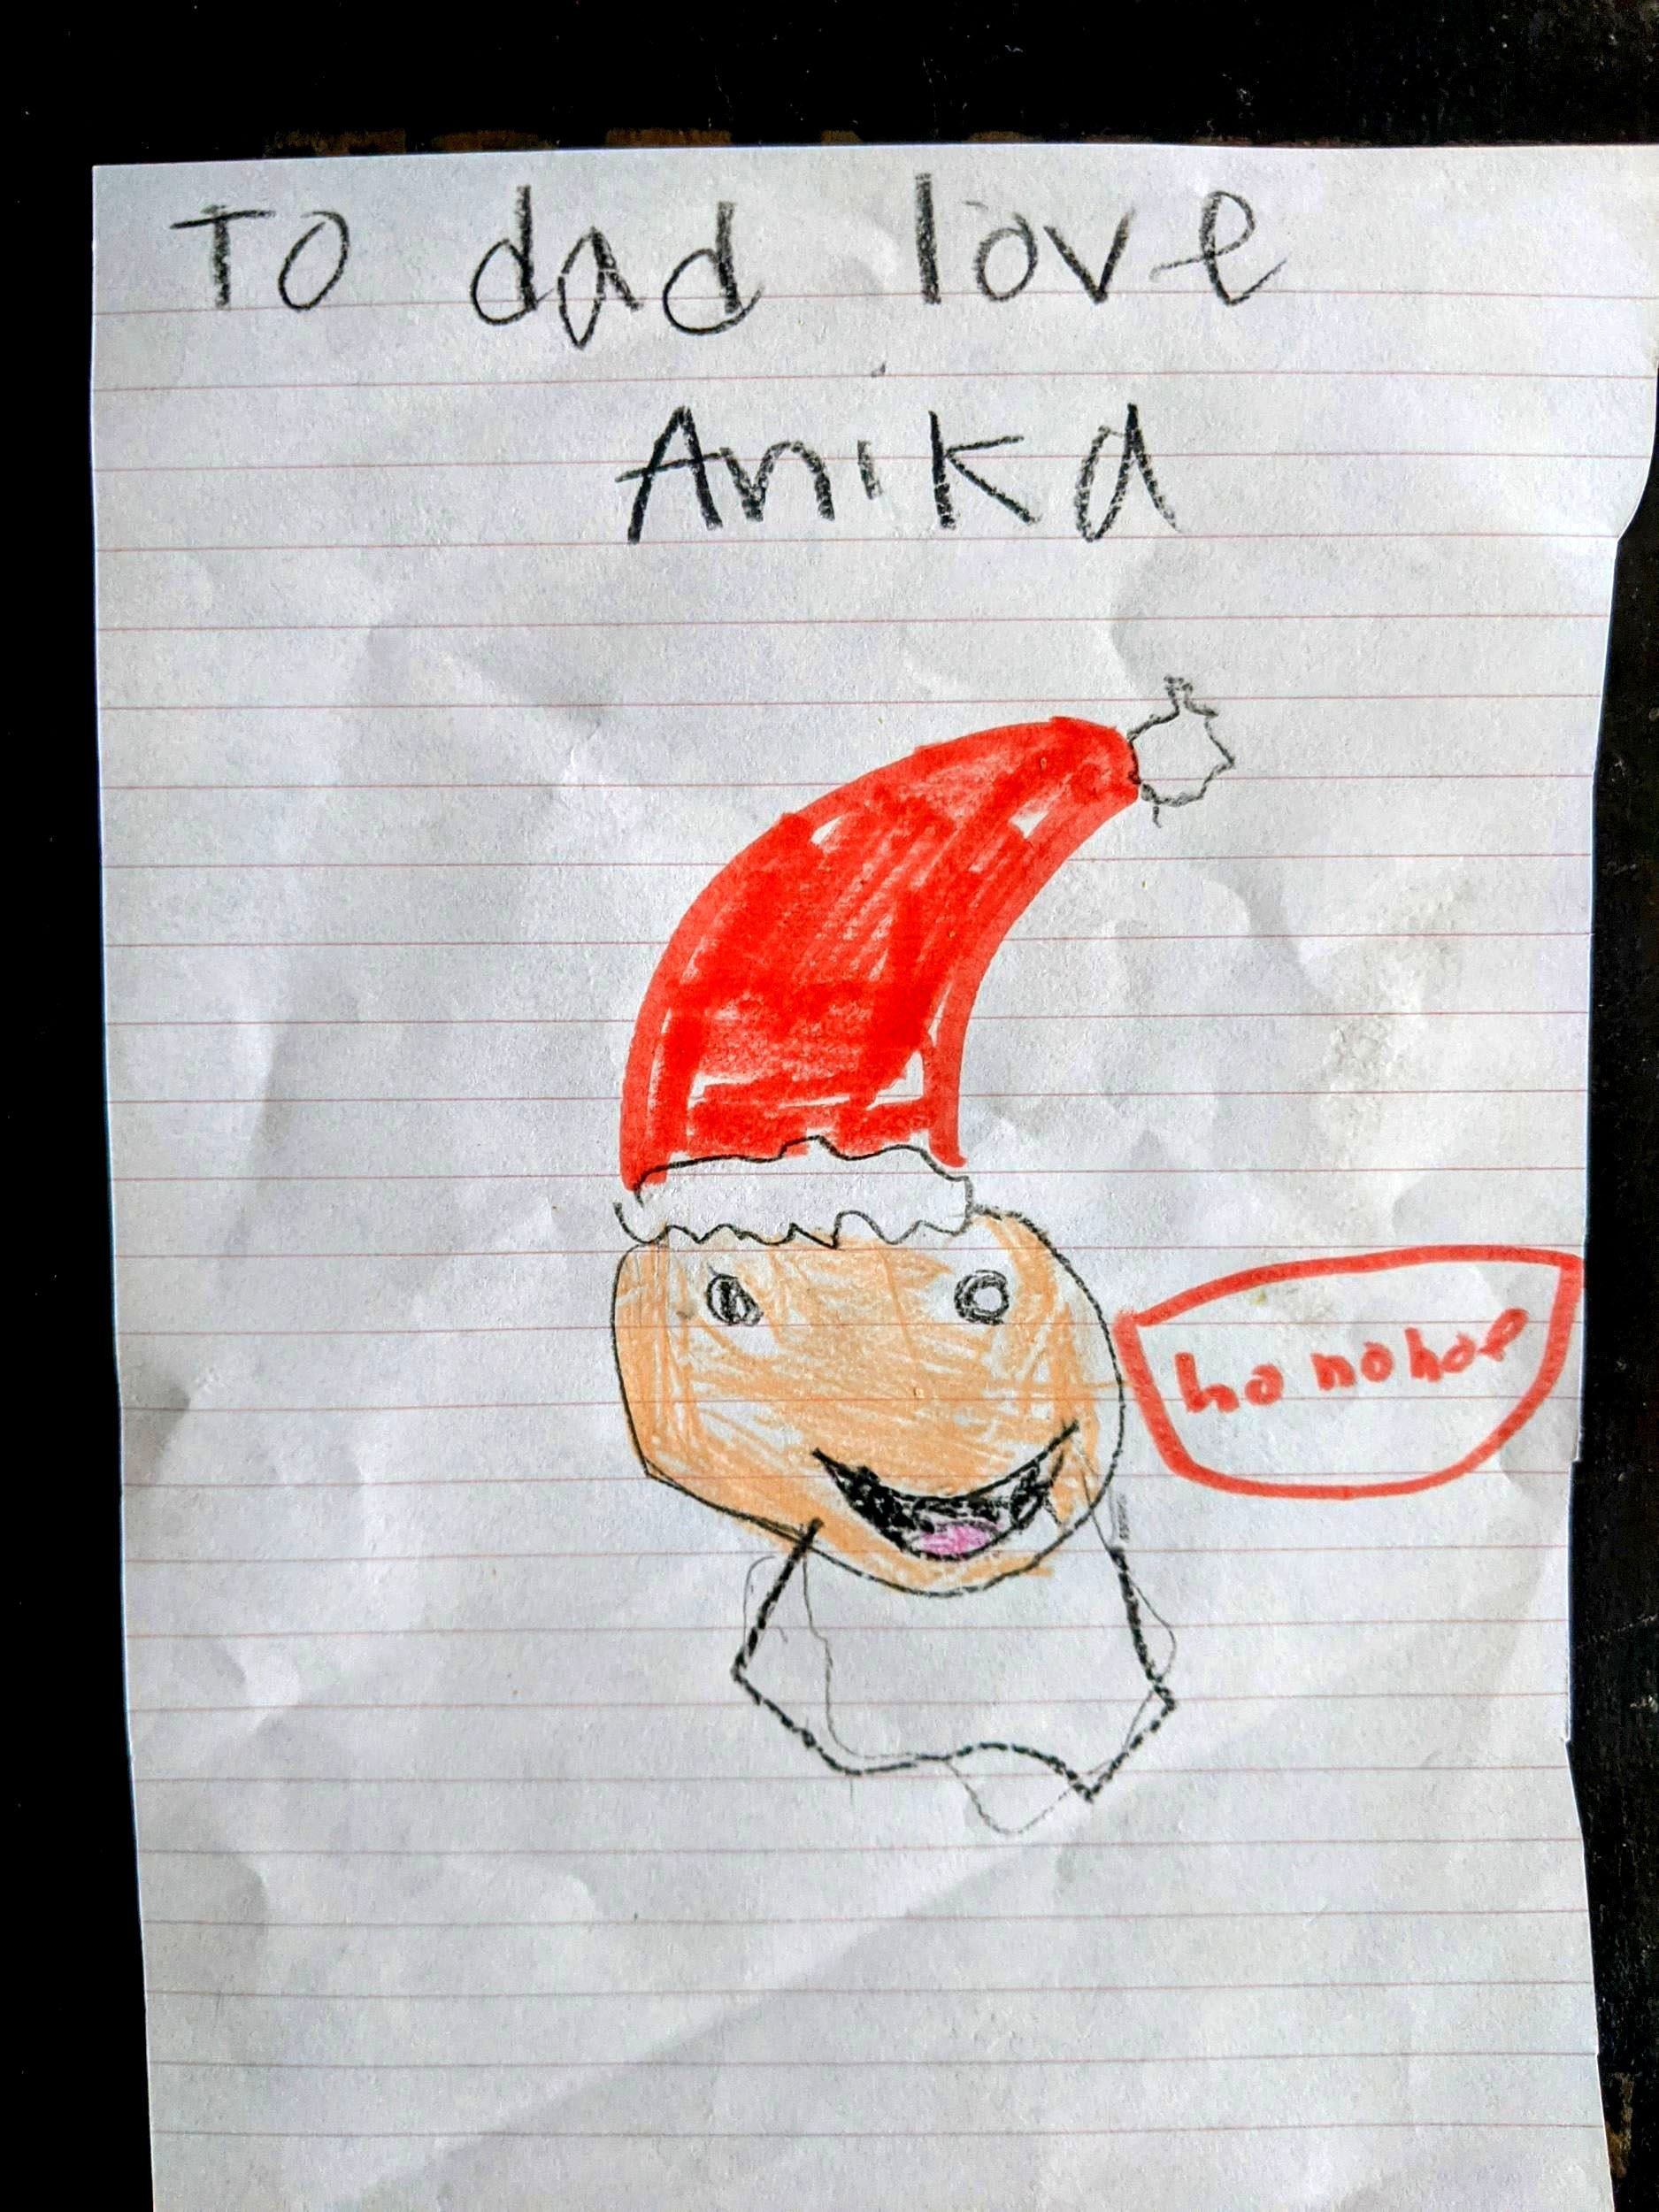 To dad love
Anika
ho nohoe